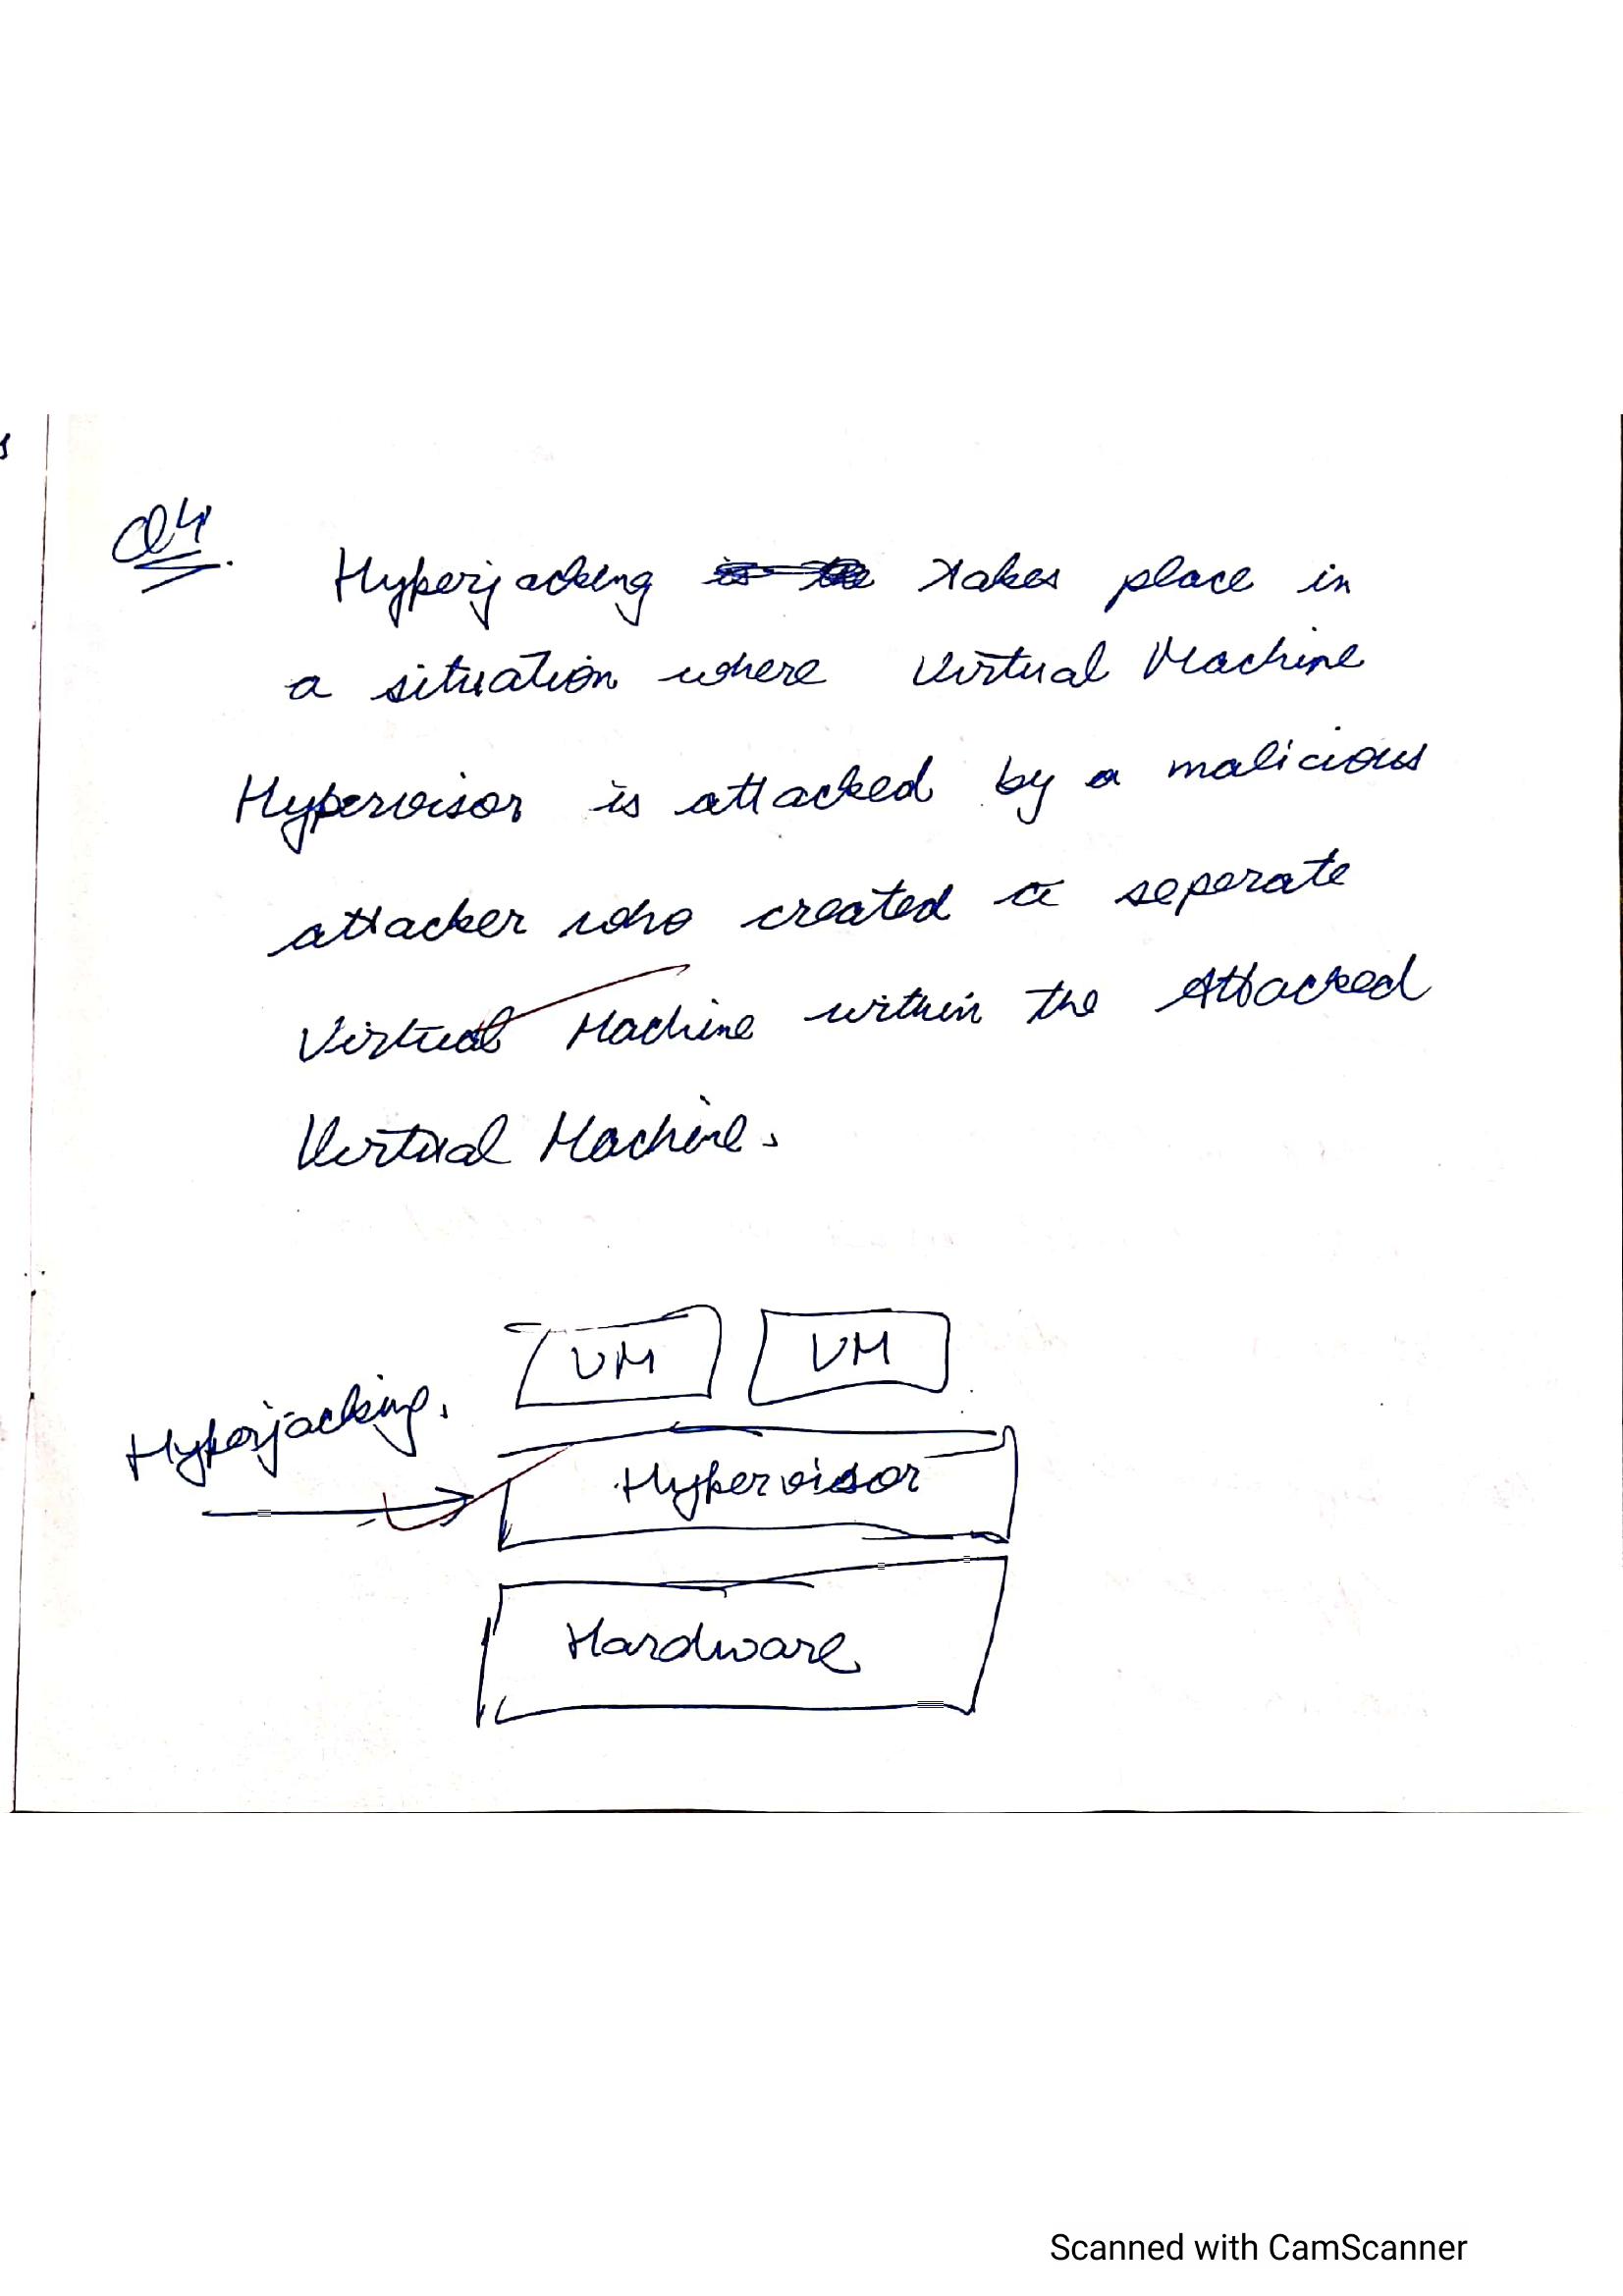 s
Q4.
Hyperjacking takes place in
a situation where Virtual Machine
Hypervisor is attacked by a malicious
attacker who created a seperate
Virtual Machine within the Attacked
Virtual Machine.
VM VM
Hyperjacking.
Hypervisor
Hardware
Scanned with CamScanner